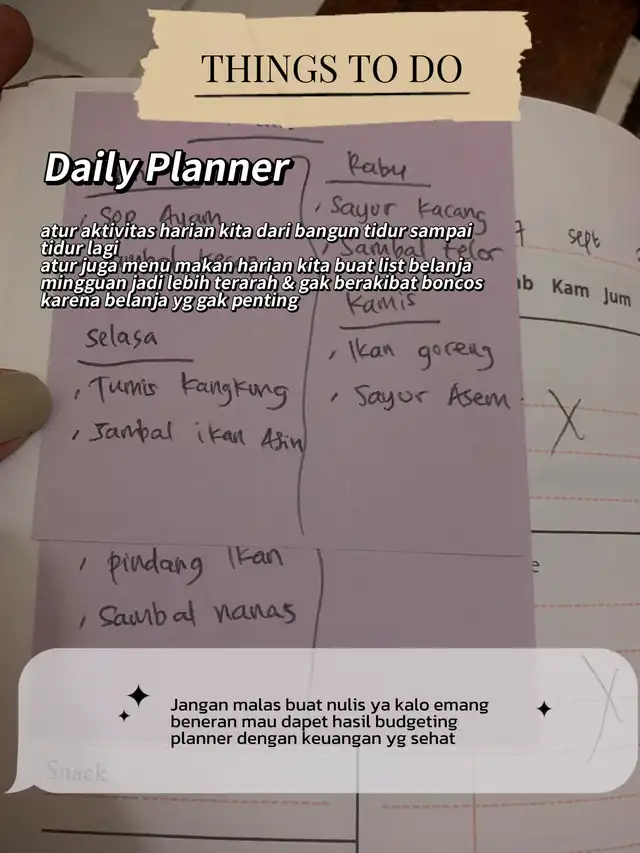 THINGS TO DO
Daily Planner
atur aktivitas harian kita dari bangun tidur sampai
tidur lagi
atur juga menu makan harian kita buat list belanja
mingguan jadi lebih terarah & gak berakibat boncos
karena belanja yg gak penting
, Sop Ayam
Selasa
, Tumis kangkung
, Sambal ikan Asin
Rabu
, Sayur kacang
, Sambal telor
Kamis
, Ikan goreng
, Sayur Asem
, pindang Ikan
, Sambal nanas
sept
Kam Jum
X
X
Jangan malas buat nulis ya kalo emang
beneran mau dapet hasil budgeting
planner dengan keuangan yg sehat
Snack